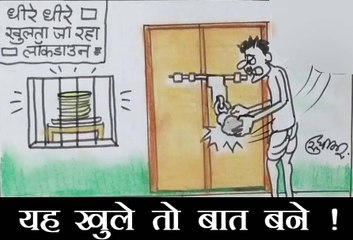 धीरे धीरे
खुलता जा रहा
लॉकडाउन
यह खुले तो बात बने !